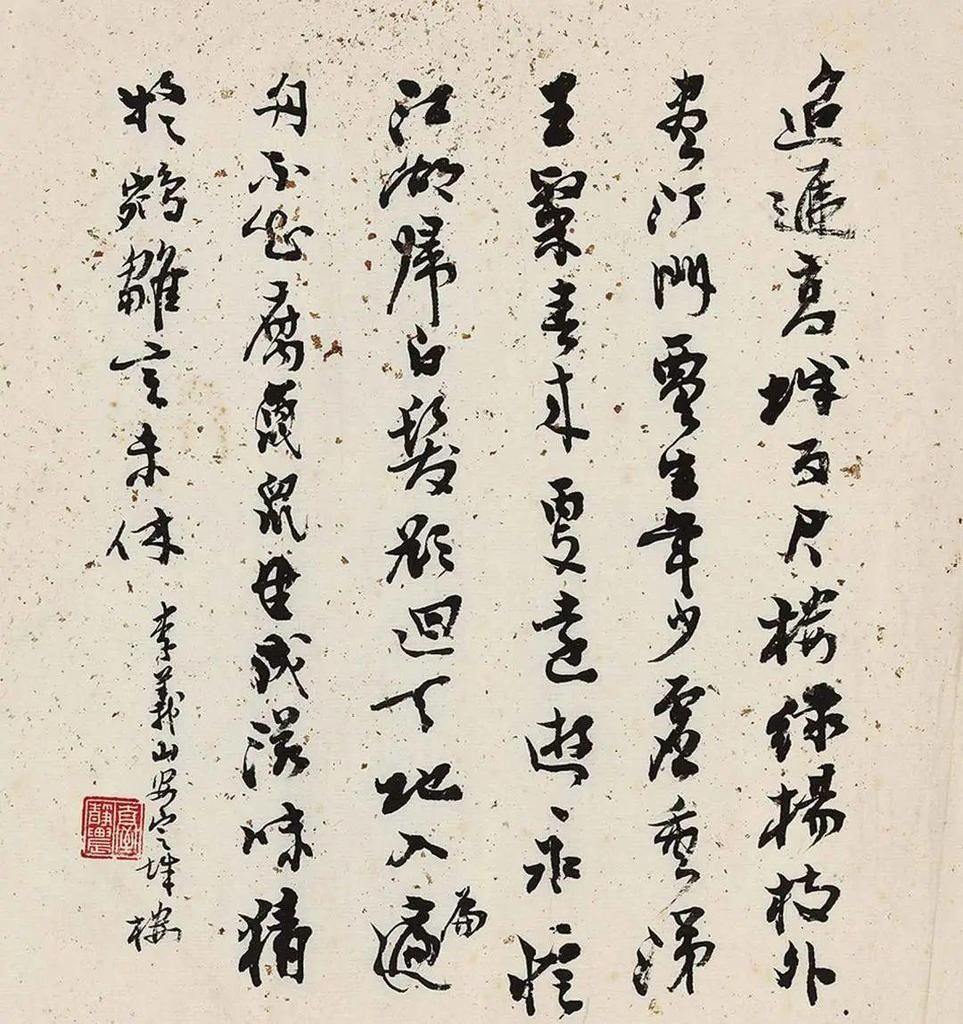 迢遞高城百尺樓綠楊枝外
盡汀洲賈生年少虛垂涕
王粲春來更遠遊永憶
江湖歸白髮欲迴天地入扁
舟不知腐鼠成滋味猜
鵷雛竟未休
李義山安定城樓
臺靜農